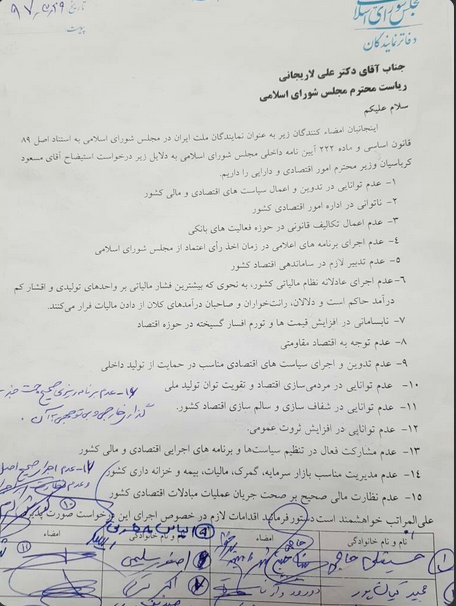 مجلس شورای اسلامی
دفاتر نمایندگان
تاریخ ۹۷
پیوست
جناب آقای دکتر علی لاریجانی
ریاست محترم مجلس شورای اسلامی
سلام علیکم
اینجانبان امضاء کنندگان زیر به عنوان نمایندگان ملت ایران در مجلس شورای اسلامی به استناد اصل ۸۹
قانون اساسی و ماده ۲۲۲ آیین نامه داخلی مجلس شورای اسلامی به دلایل زیر درخواست استیضاح آقای مسعود
کرباسیان وزیر محترم امور اقتصادی و دارایی را داریم.
۱- عدم توانایی در تدوین و اعمال سیاست های اقتصادی و مالی کشور
۲- ناتوانی در اداره امور اقتصادی کشور
۳- عدم اعمال تکالیف قانونی در حوزه فعالیت های بانکی
۴- عدم اجرای برنامه های اعلامی در زمان اخذ رأی اعتماد از مجلس شورای اسلامی
۵- عدم تدبیر لازم در ساماندهی اقتصاد کشور
۶- عدم اجرای عادلانه نظام مالیاتی کشور، به نحوی که بیشترین فشار مالیاتی بر واحدهای تولیدی و اقشار کم
درآمد حاکم است و دلالان، رانت‌خواران و صاحبان درآمدهای کلان از دادن مالیات فرار می‌کنند.
۷- نابسامانی در افزایش قیمت ها و تورم افسار گسیخته در حوزه اقتصاد
۸- عدم توجه به اقتصاد مقاومتی
۹- عدم تدوین و اجرای سیاست های اقتصادی مناسب در حمایت از تولید داخلی
۱۰- عدم توانایی در مردمی‌سازی اقتصاد و تقویت توان تولید ملی
۱۱- عدم توانایی در شفاف سازی و سالم سازی اقتصاد کشور.
۱۲- عدم توانایی در افزایش ثروت عمومی.
۱۳- عدم مشارکت فعال در تنظیم سیاست‌ها و برنامه های اجرایی اقتصادی و مالی کشور
۱۴- عدم مدیریت مناسب بازار سرمایه، گمرک، مالیات، بیمه و خزانه داری کشور
۱۵- عدم نظارت مالی صحیح بر صحت جریان عملیات مبادلات اقتصادی کشور
۱۶- عدم برنامه ریزی صحیح جهت جذب
گذاری خارجی و
۱۷- عدم اجرای صحیح اصل
علی‌المراتب خواهشمند است دستور فرمائید اقدامات لازم در خصوص اجرای این درخواست صورت پذیرد
نام و نام خانوادگی امضاء نام و نام خانوادگی امضاء